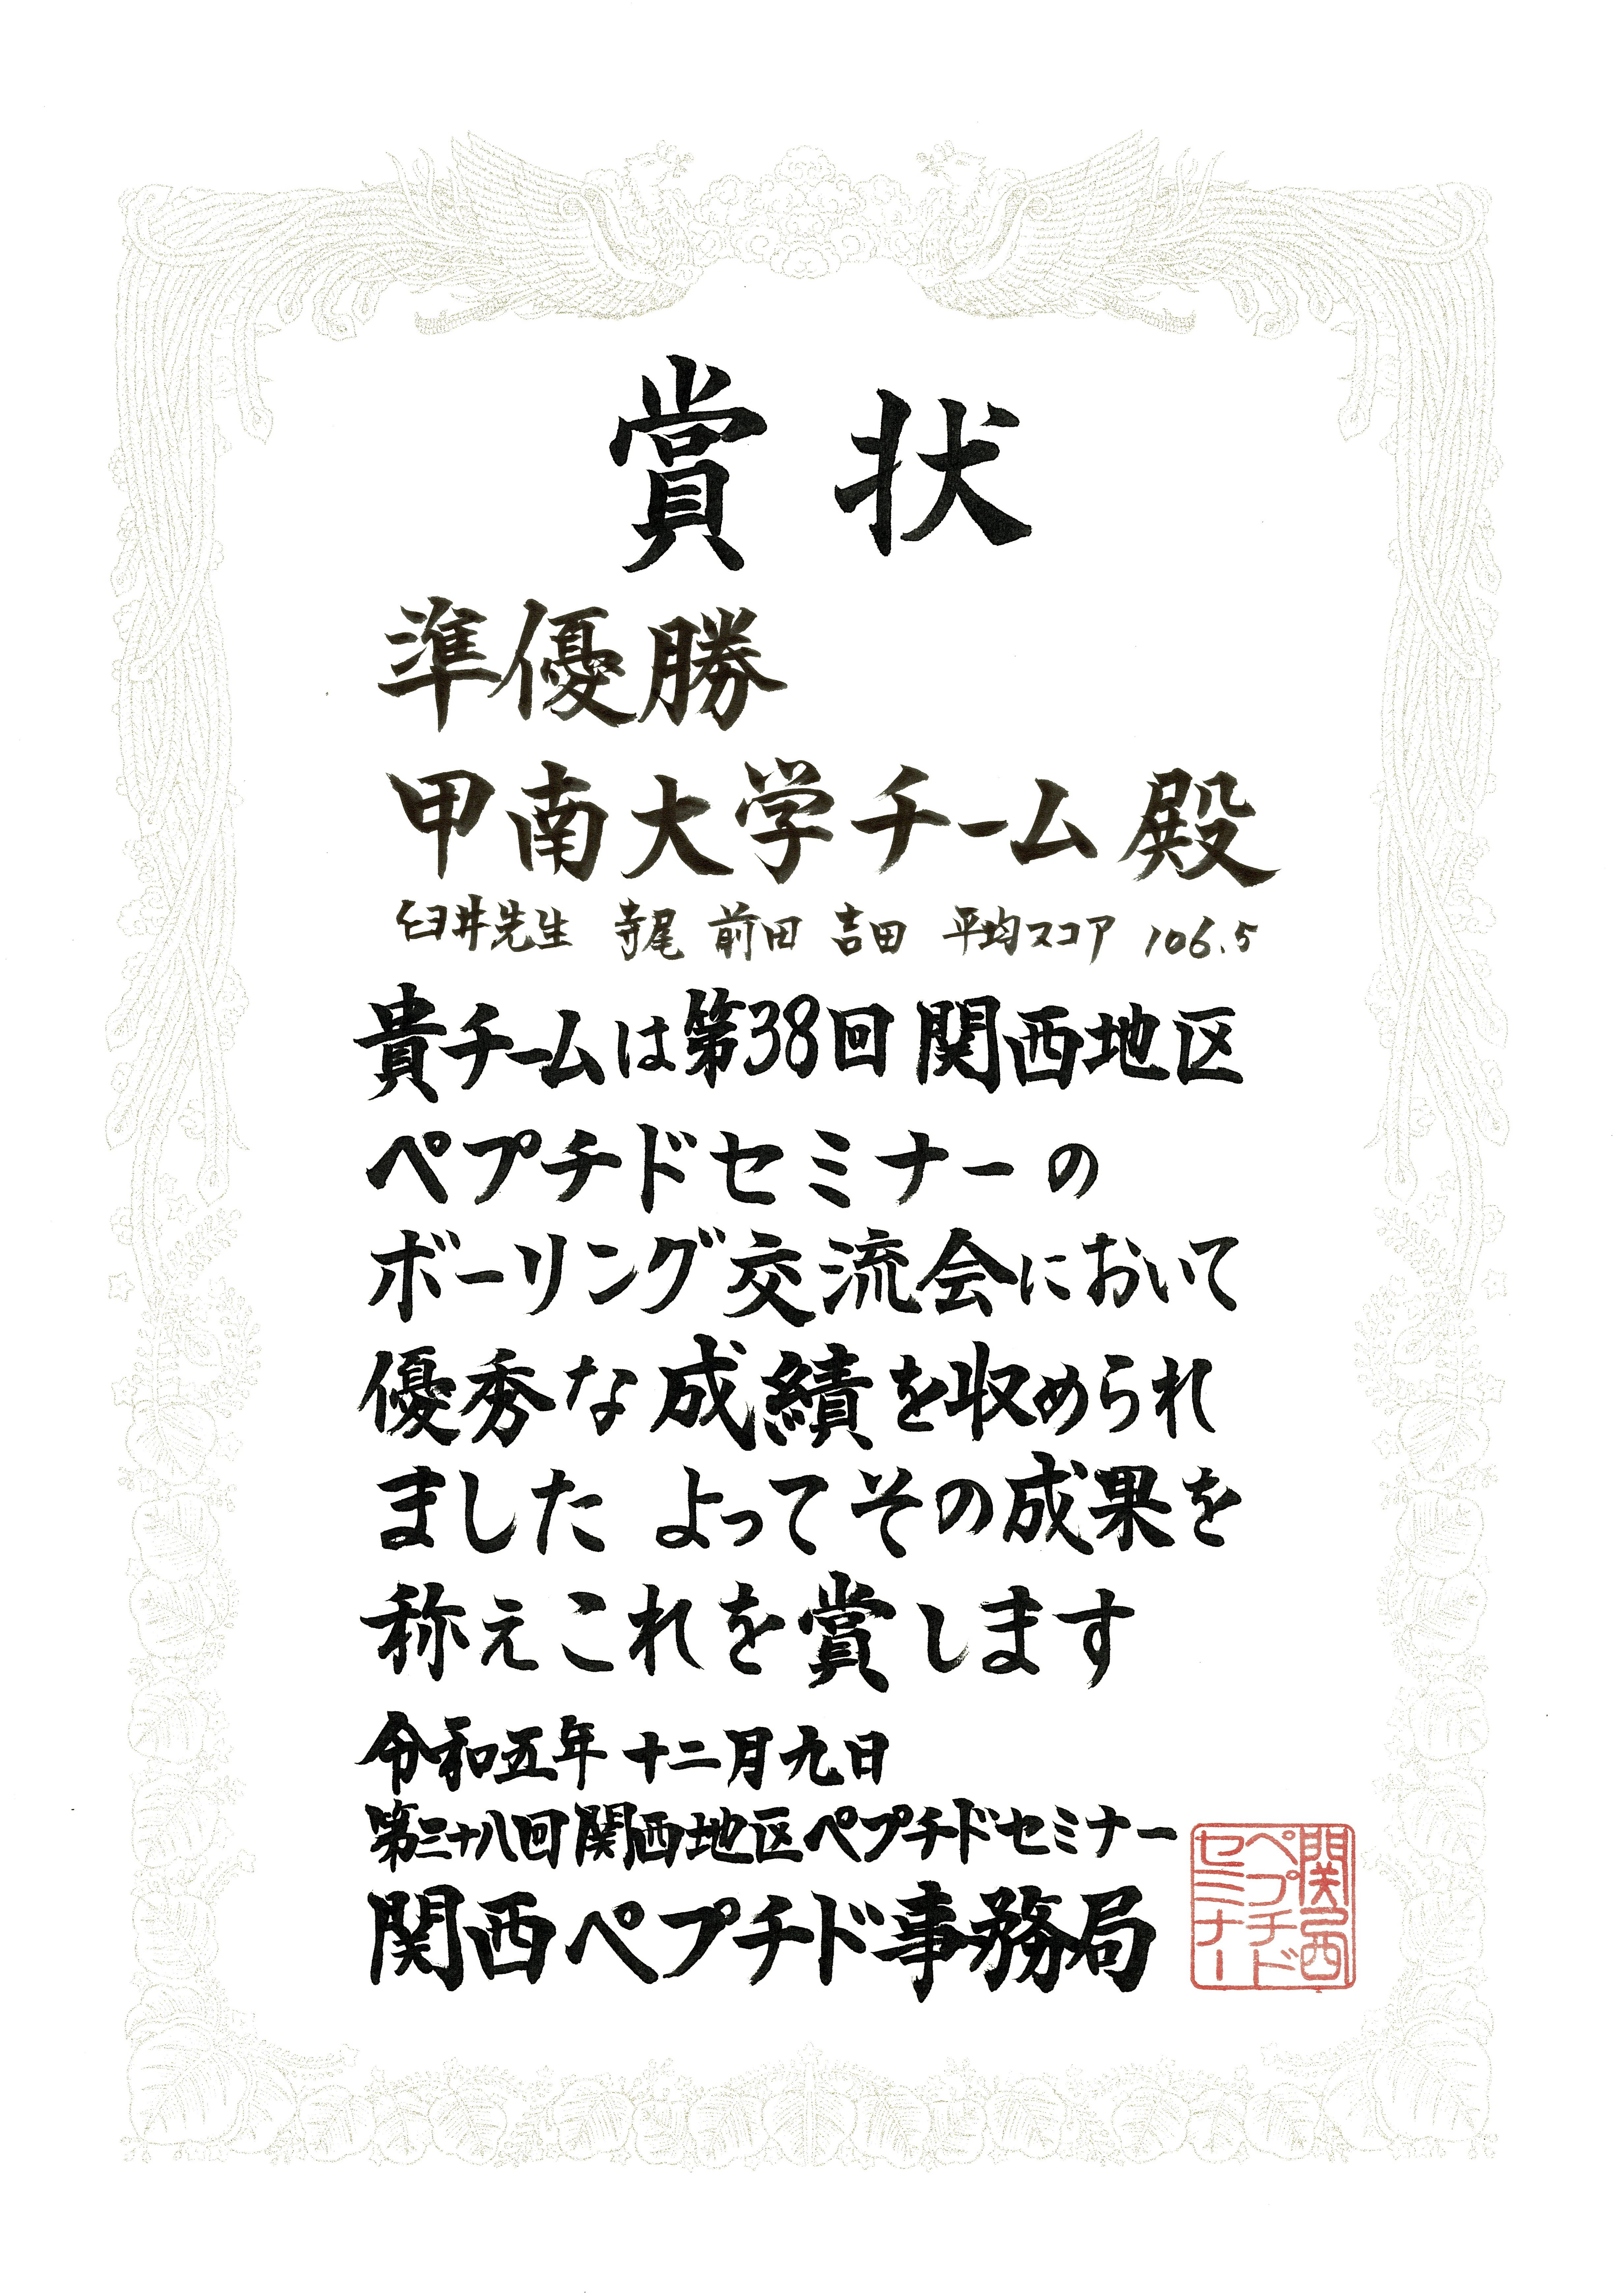 賞状
準優勝
甲南大学チーム殿
臼井先生 寺尾 前田 吉田 平均スコア 106.5
貴チームは第38回関西地区
ペプチドセミナーの
ボーリング交流会において
優秀な成績を収められ
ました よってその成果を
称えこれを賞します
令和五年 十二月九日
第三十八回関西地区ペプチドセミナー
関西ペプチド事務局
関西
ペプチド
セミナー